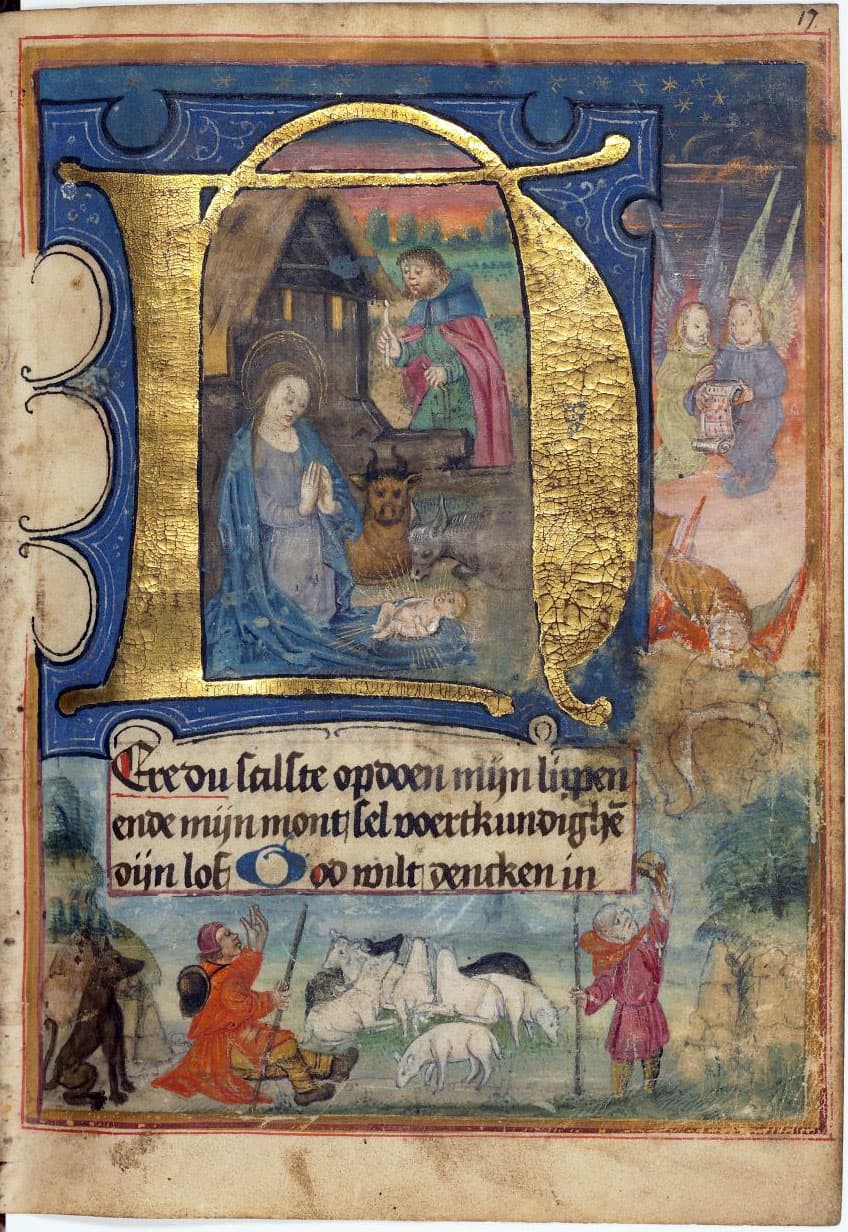 17.
HEre du salste opdoen mijn lippen
ende mijn mont sel voertkundighē
dijn lof God wilt dencken in